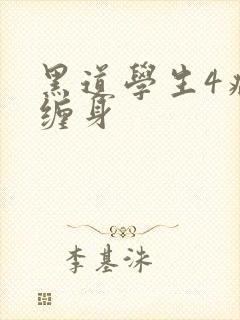 黑道學生4
缠身
李基洙